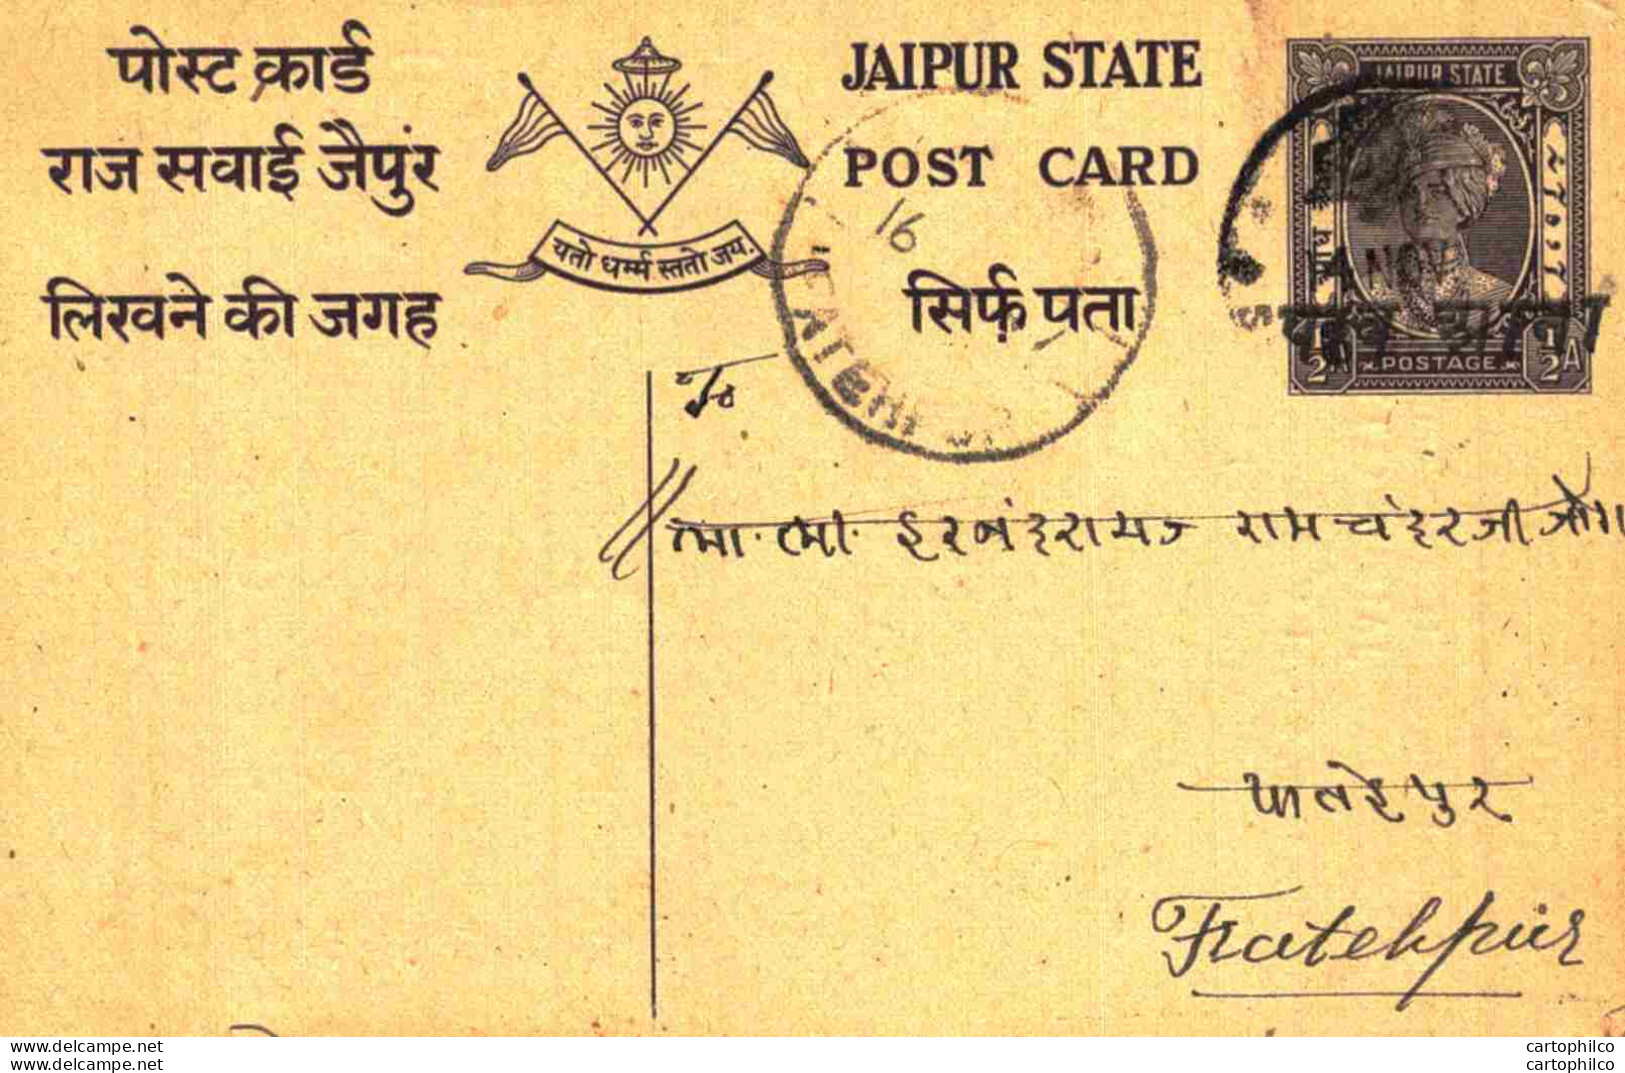 पोस्ट कार्ड
राज सवाई जैपुर
लिखने की जगह
यतो धर्म्म स्ततो जय:
JAIPUR STATE
POST CARD
सिर्फ़ पता
16
FATEHPUR
JAIPUR STATE
NOV
½ A POSTAGE ½ A
रामचंदरजी
फतेहपुर
Fatehpur
www.delcampe.net
www.delcampe.net
cartophilco
cartophilco